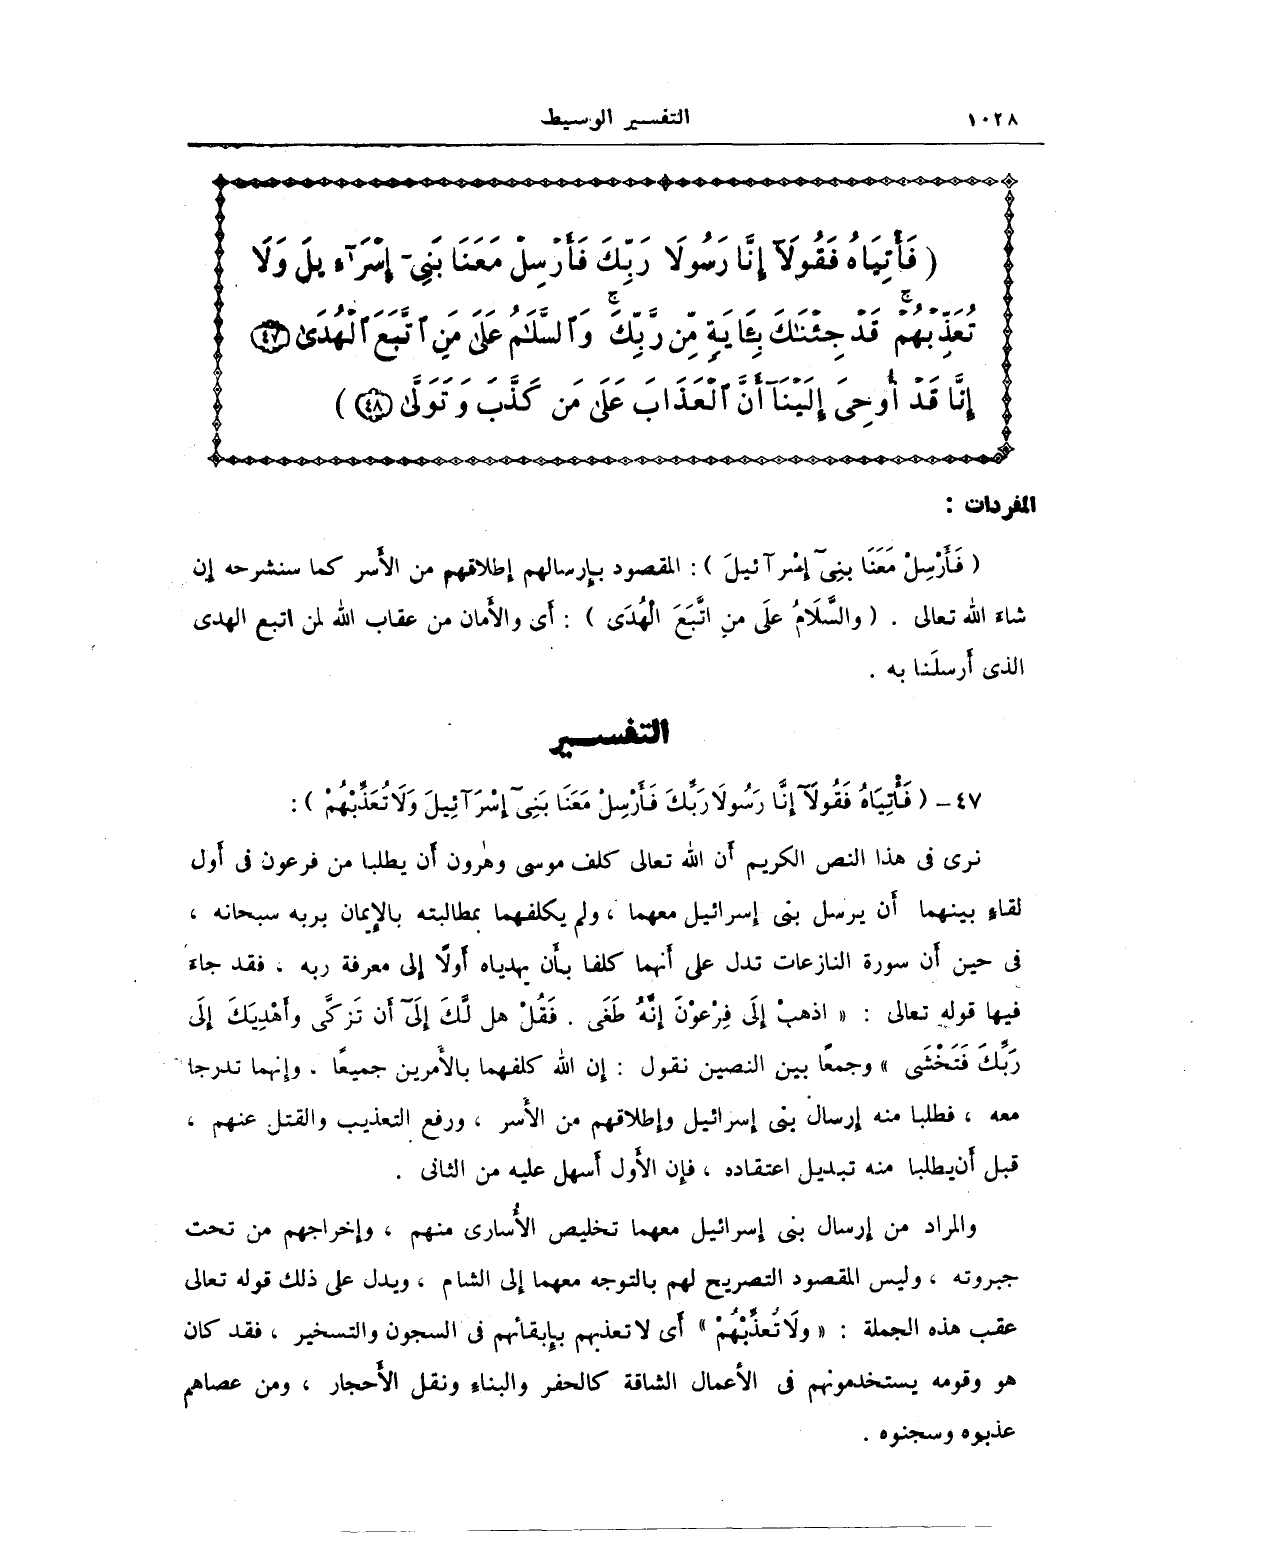 ١٠٢٨ التفسير الوسيط
( فَأْتِيَاهُ فَقُولَآ إِنَّا رَسُولَا رَبِّكَ فَأَرْسِلْ مَعَنَا بَنِىٓ إِسْرَٰٓءِيلَ وَلَا
تُعَذِّبْهُمْ ۖ قَدْ جِئْنَٰكَ بِـَٔايَةٍ مِّن رَّبِّكَ ۖ وَٱلسَّلَٰمُ عَلَىٰ مَنِ ٱتَّبَعَ ٱلْهُدَىٰٓ ﴿٤٧﴾
إِنَّا قَدْ أُوحِىَ إِلَيْنَآ أَنَّ ٱلْعَذَابَ عَلَىٰ مَن كَذَّبَ وَتَوَلَّىٰ ﴿٤٨﴾ )
المفردات :
( فَأَرْسِلْ مَعَنَا بنِىٓ إِسْرآئيلَ ) : المقصود بإرسالهم إطلاقهم من الأَسر كما سنشرحه إن
شاءَ الله تعالى . ( والسَّلَامُ علَى منِ اتَّبَعَ الْهُدَى ) : أى والأَمان من عقاب الله لمن اتبع الهدى
الذى أَرسلَنا به .
التفســـير
٤٧ – ( فَأْتِيَاهُ فَقُولَآ إِنَّا رَسُولَا رَبِّكَ فَأَرْسِلْ مَعَنَا بَنِىٓ إِسْرَآئِيلَ وَلَا تُعَذِّبْهُمْ ) :
نرى فى هذا النص الكريم أَن الله تعالى كلف موسى وهٰرون أَن يطلبا من فرعون فى أَول
لقاءٍ بينهما أَن يرسل بنى إسرائيل معهما ، ولم يكلفهما بمطالبته بالإِيمان بربه سبحانه ،
فى حين أَن سورة النازعات تدل على أَنهما كلفا بأَن يهدياه أَولًا إلى معرفة ربه ، فقد جاءَ
فيها قوله تعالى : « اذهبْ إلَى فِرْعوْنَ إنَّهُ طَغَى . فَقُلْ هل لَّكَ إلَىٓ أَن تَزكَّى وأَهْدِيَكَ إلَى
رَبِّكَ فَتَخْشَى » وجمعًا بين النصين نقول : إن الله كلفهما بالأَمرين جميعًا . وإنهما تدرجا
معه ، فطلبا منه إرسال بنى إسرائيل وإطلاقهم من الأَسر ، ورفع التعذيب والقتل عنهم ،
قبل أَن يطلبا منه تبديل اعتقاده ، فإن الأَول أَسهل عليه من الثانى .
والمراد من إرسال بنى إسرائيل معهما تخليص الأُسارى منهم ، وإخراجهم من تحت
جبروته ، وليس المقصود التصريح لهم بالتوجه معهما إلى الشام ، ويدل على ذلك قوله تعالى
عقب هذه الجملة : « ولَا تُعذِّبْهُمْ » أَى لا تعذبهم بإبقائهم فى السجون والتسخير ، فقد كان
هو وقومه يستخدمونهم فى الأَعمال الشاقة كالحفر والبناء ونقل الأَحجار ، ومن عصاهم
عذبوه وسجنوه .